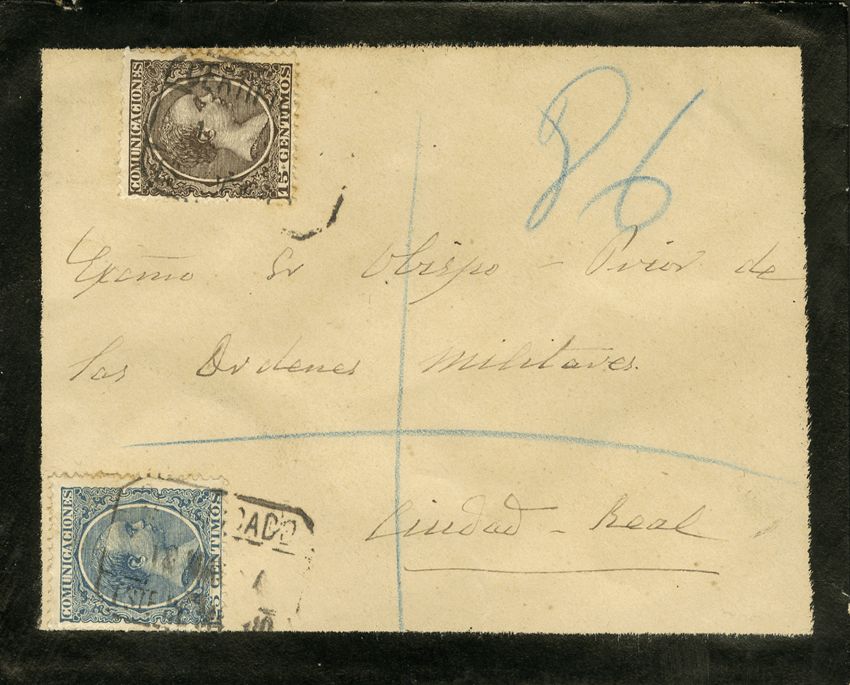 COMUNICACIONES
15 CENTIMOS
86
Excmo Sr Obispo - Prior de
las Ordenes Militares.
Ciudad - Real
COMUNICACIONES
CENTIMOS